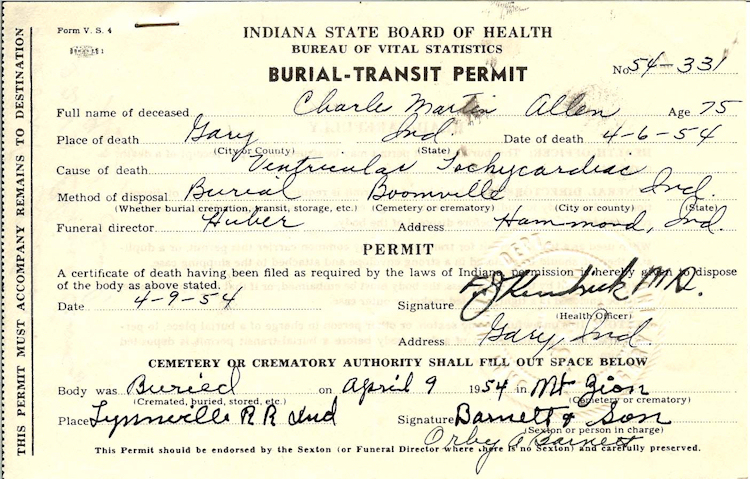 THIS PERMIT MUST ACCOMPANY REMAINS TO DESTINATION
Form V. S. 4
INDIANA STATE BOARD OF HEALTH
BUREAU OF VITAL STATISTICS
BURIAL-TRANSIT PERMIT
No. 54-331
Full name of deceased Charle Martin Allen Age 75
Place of death Gary Ind Date of death 4-6-54
(City or County) (State)
Cause of death Ventricular Tachycardiac
Method of disposal Burial Boomville Ind.
(Whether burial cremation, transit, storage, etc.) (Cemetery or crematory) (City or county) (State)
Funeral director Huber Address Hammond, Ind.
PERMIT
A certificate of death having been filed as required by the laws of Indiana, permission is hereby given to dispose
of the body as above stated.
Date 4-9-54 Signature M.D.
(Health Officer)
Address Gary, Ind
CEMETERY OR CREMATORY AUTHORITY SHALL FILL OUT SPACE BELOW
Body was Buried on April 9 1954 in Mt Zion
(Cremated, buried, stored, etc.) (Cemetery or crematory)
Place Lynnville R R Ind Signature Barnett & Son
(Sexton or person in charge)
Orby A Barnett
This Permit should be endorsed by the Sexton (or Funeral Director where there is no Sexton) and carefully preserved.